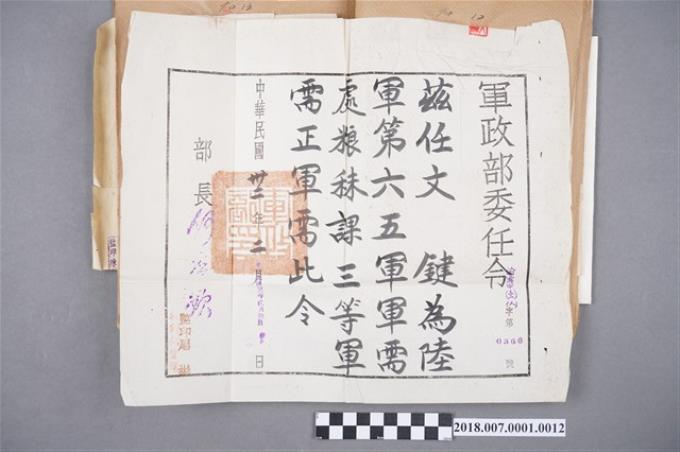 軍政部委任令
字第
號
茲任文 鍵為陸
軍第六五軍軍需
處粮秣課三等軍
需正軍需此令
中華民國卅二年二月 日
部長
2018.007.0001.0012